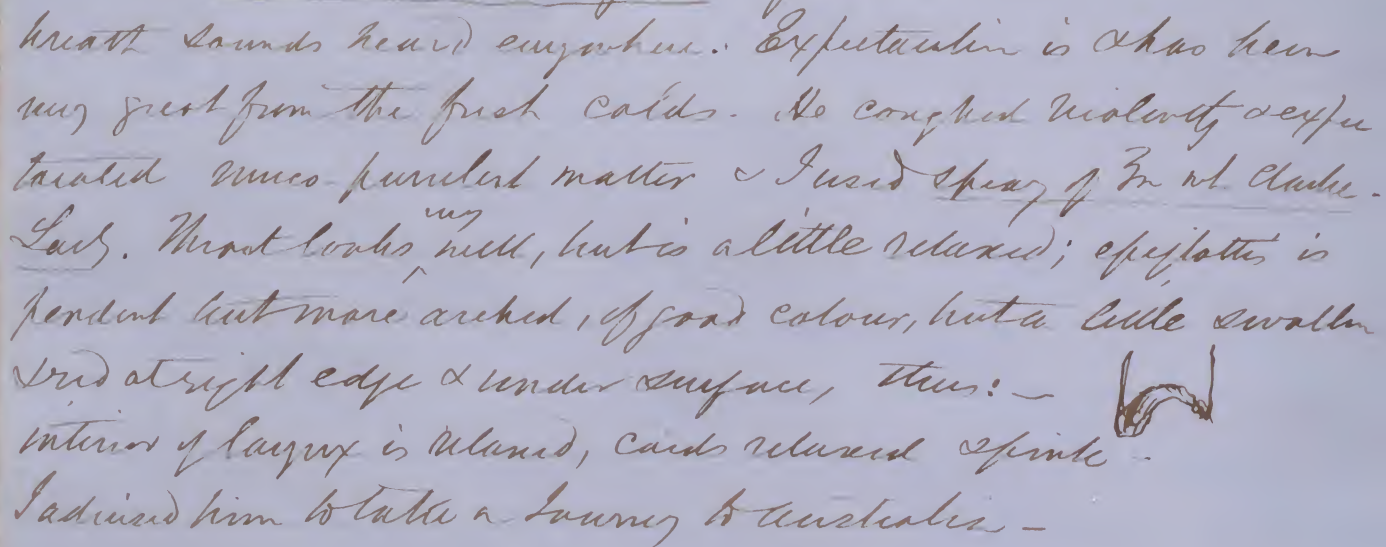 breath sounds heard everywhere. Expectoration is & has been
very great from the first colds. He coughed violently & expec
torated muco-purulent matter & I used spray of
Throat looks very well, but is a little relaxed; epiglottis is
pendent but more arched, of good colour, but a little swollen
& red at right edge & under surface, thus:-
interior of larynx is relaxed, cords relaxed & pink -
I advised him to take a Journey to Australia -